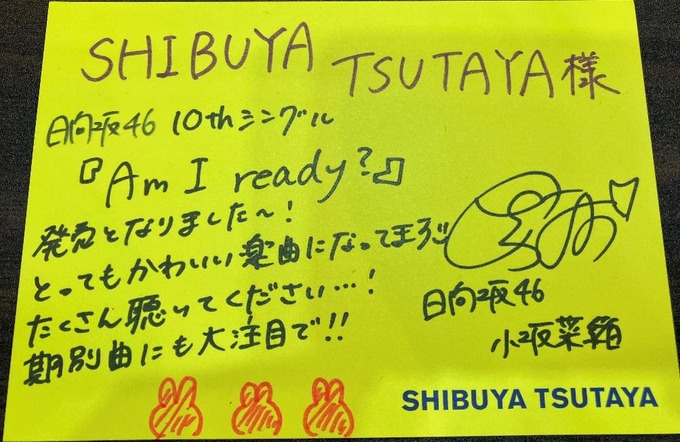 SHIBUYA TSUTAYA様
日向坂46 10thシングル
『Am I ready?』
発売となりました〜!
とってもかわいい楽曲になってます
たくさん聴いてください…!
期別曲にも大注目で!!
日向坂46
小坂菜緒
SHIBUYA TSUTAYA